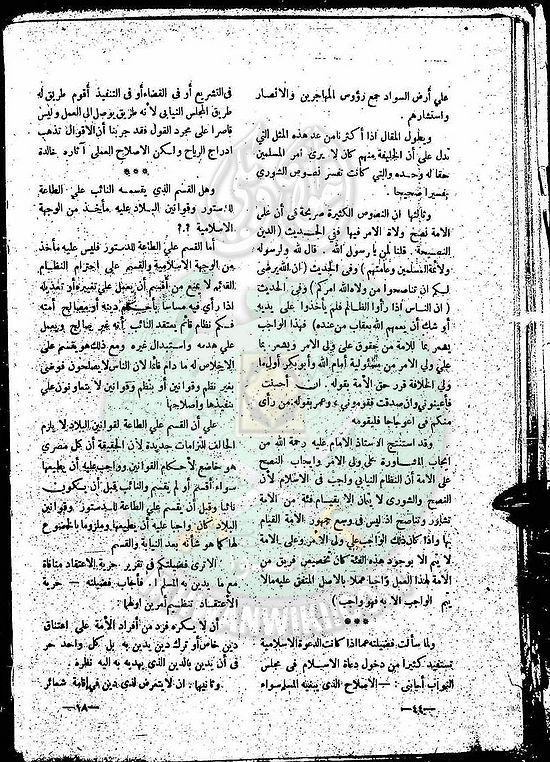 علي أرض السواد جمع رؤوس المهاجرين والأنصار
واستشارهم .
ويطول المقال اذا أكثرنا من عد هذه المثل التي
تدل على أن الخليفة منهم كان لا يرى أمر المسلمين
حقا له وحده والتي كانت تفسر نصوص الشورى
تفسيرا صحيحا .
وثالثها ان النصوص الكثيرة صريحة في أن على
الامة نصح ولاة الامر فيها فني الحديث (الدين
النصيحة . قلنا لمن يا رسول الله . قال لله ولرسوله
ولائمة المسلمين وعامتهم ) وفي الحديث ( ان الله يرضى
لكم ان تناصحوا من ولاه الله امركم ) وفى الحديث
( ان الناس اذا رأوا الظالم فلم يأخذوا على يديه
أو شك أن يعمهم الله بعقاب من عنده ) فهذا الواجب
يصر بما للأمة من حقوق على ولى الامر ويشعر بما
علي ولى الامر من مسئولية أمام الله وأبو بكر أول ما
ولي الخلافة قرر حق الأمة بقوله . ان أحسنت
فأعينوني وان صدفت فقوموني » وعمر بقوله من رأى
منكم فى اعوجاجا فليقومه
وقد استنتج الاستاذ الامام عليه رحمة الله من
ايجاب المشاورة على ولى الامر وايجاب النصح
على الامة أن النظام النيابي واجب في الاسلام لأن
النصح والشورى لا يتمان الا بقيام فئة من الامة
تشاور وتناصح اذ ليس فى وسع جمهور الامة القيام
بها واذا كان ذلك الواجب على ولى الامر وعلى الامة
لا يتم الا بوجود هذه الفئة كان تخصيص فريق من
الامة لهذا العمل واجبا عملا بالاصل المتفق عليه مالا
يتم الواجب الا به فهو واجب )
***
ولما سألت فضيلته عما اذا كانت الدعوة الاسلامية
تستفيد كثيرا من دخول دعاة الاسلام فى مجلس
النواب أجابني . — الاصلاح الذى يبغيه المسلم سواء
—٤٤—
فى التشريع أو فى القضاء أو فى التنفيذ أقوم طريق له
طريق المجلس النيابي لأنه طريق يوصل الى العمل وليس
قاصرا على مجرد القول فقد جربنا أن الاقوال تذهب
ادراج الرياح ولكن الاصلاح العملى آثاره خالدة
***
وهل القسم الذي يقسمه النائب علي الطاعة
للدستور وقوانين البلاد عليه مأخذ من الوجهة
الاسلامية ؟.؟
أما القسم علي الطاعة للدستور فليس عليه مأخذ
من الوجهة الاسلامية والقسم على احترام النظام
القائم لا يمنع من أقسم أن يعمل علي تغييره أو تعديله
اذا رأى فيه مساسا بأحكام دينه أو بمصالح أمته
فكم نظام قائم يعتقد النائب أنه غير صالح ويعمل
علي هدمه واستبدال غيره ومع ذلك هو يقسم على
الاخلاص له ما دام قائما لان الناس لا يصلحون فوضى
بغير نظم وقوانين أو بنظم وقوانين لا يتعاونون علي
تنفيذها وإصلاحها
علي أن القسم علي الطاعة لقوانين البلاد لا يلزم
الحالف التزامات جديدة لأن الحقيقة أن كل مصرى
هو خاضع لأحكام القوانين وواجب عليه أن يطيعها
سواء أقسم أو لم يقسم والنائب قبل أن يكون
نائبا وقبل أن يقسم علي الطاعة للدستور وقوانين
البلاد كان واجبا عليه أن يطيعها وملزوما بالخضوع
لها كما هو شأنه بعد النيابة والقسم
ألا ترى فضيلتكم فى تقرير حرية الاعتقاد منافاة
مع ما يدين به المسلم ؟. فأجاب فضيلته — حرية
الاعتقاد تنظيم أمرين اولهما :
أن لا يكره فرد من أفراد الأمة على اعتناق
دين خاص أو ترك دين يدين به بل كل واحد حر
فى أن يدين بالدين الذى يهديه به اليه نظره .
وثانيها . ان لا يتعرض لذى دين فى إقامة شعائر
—١٨—